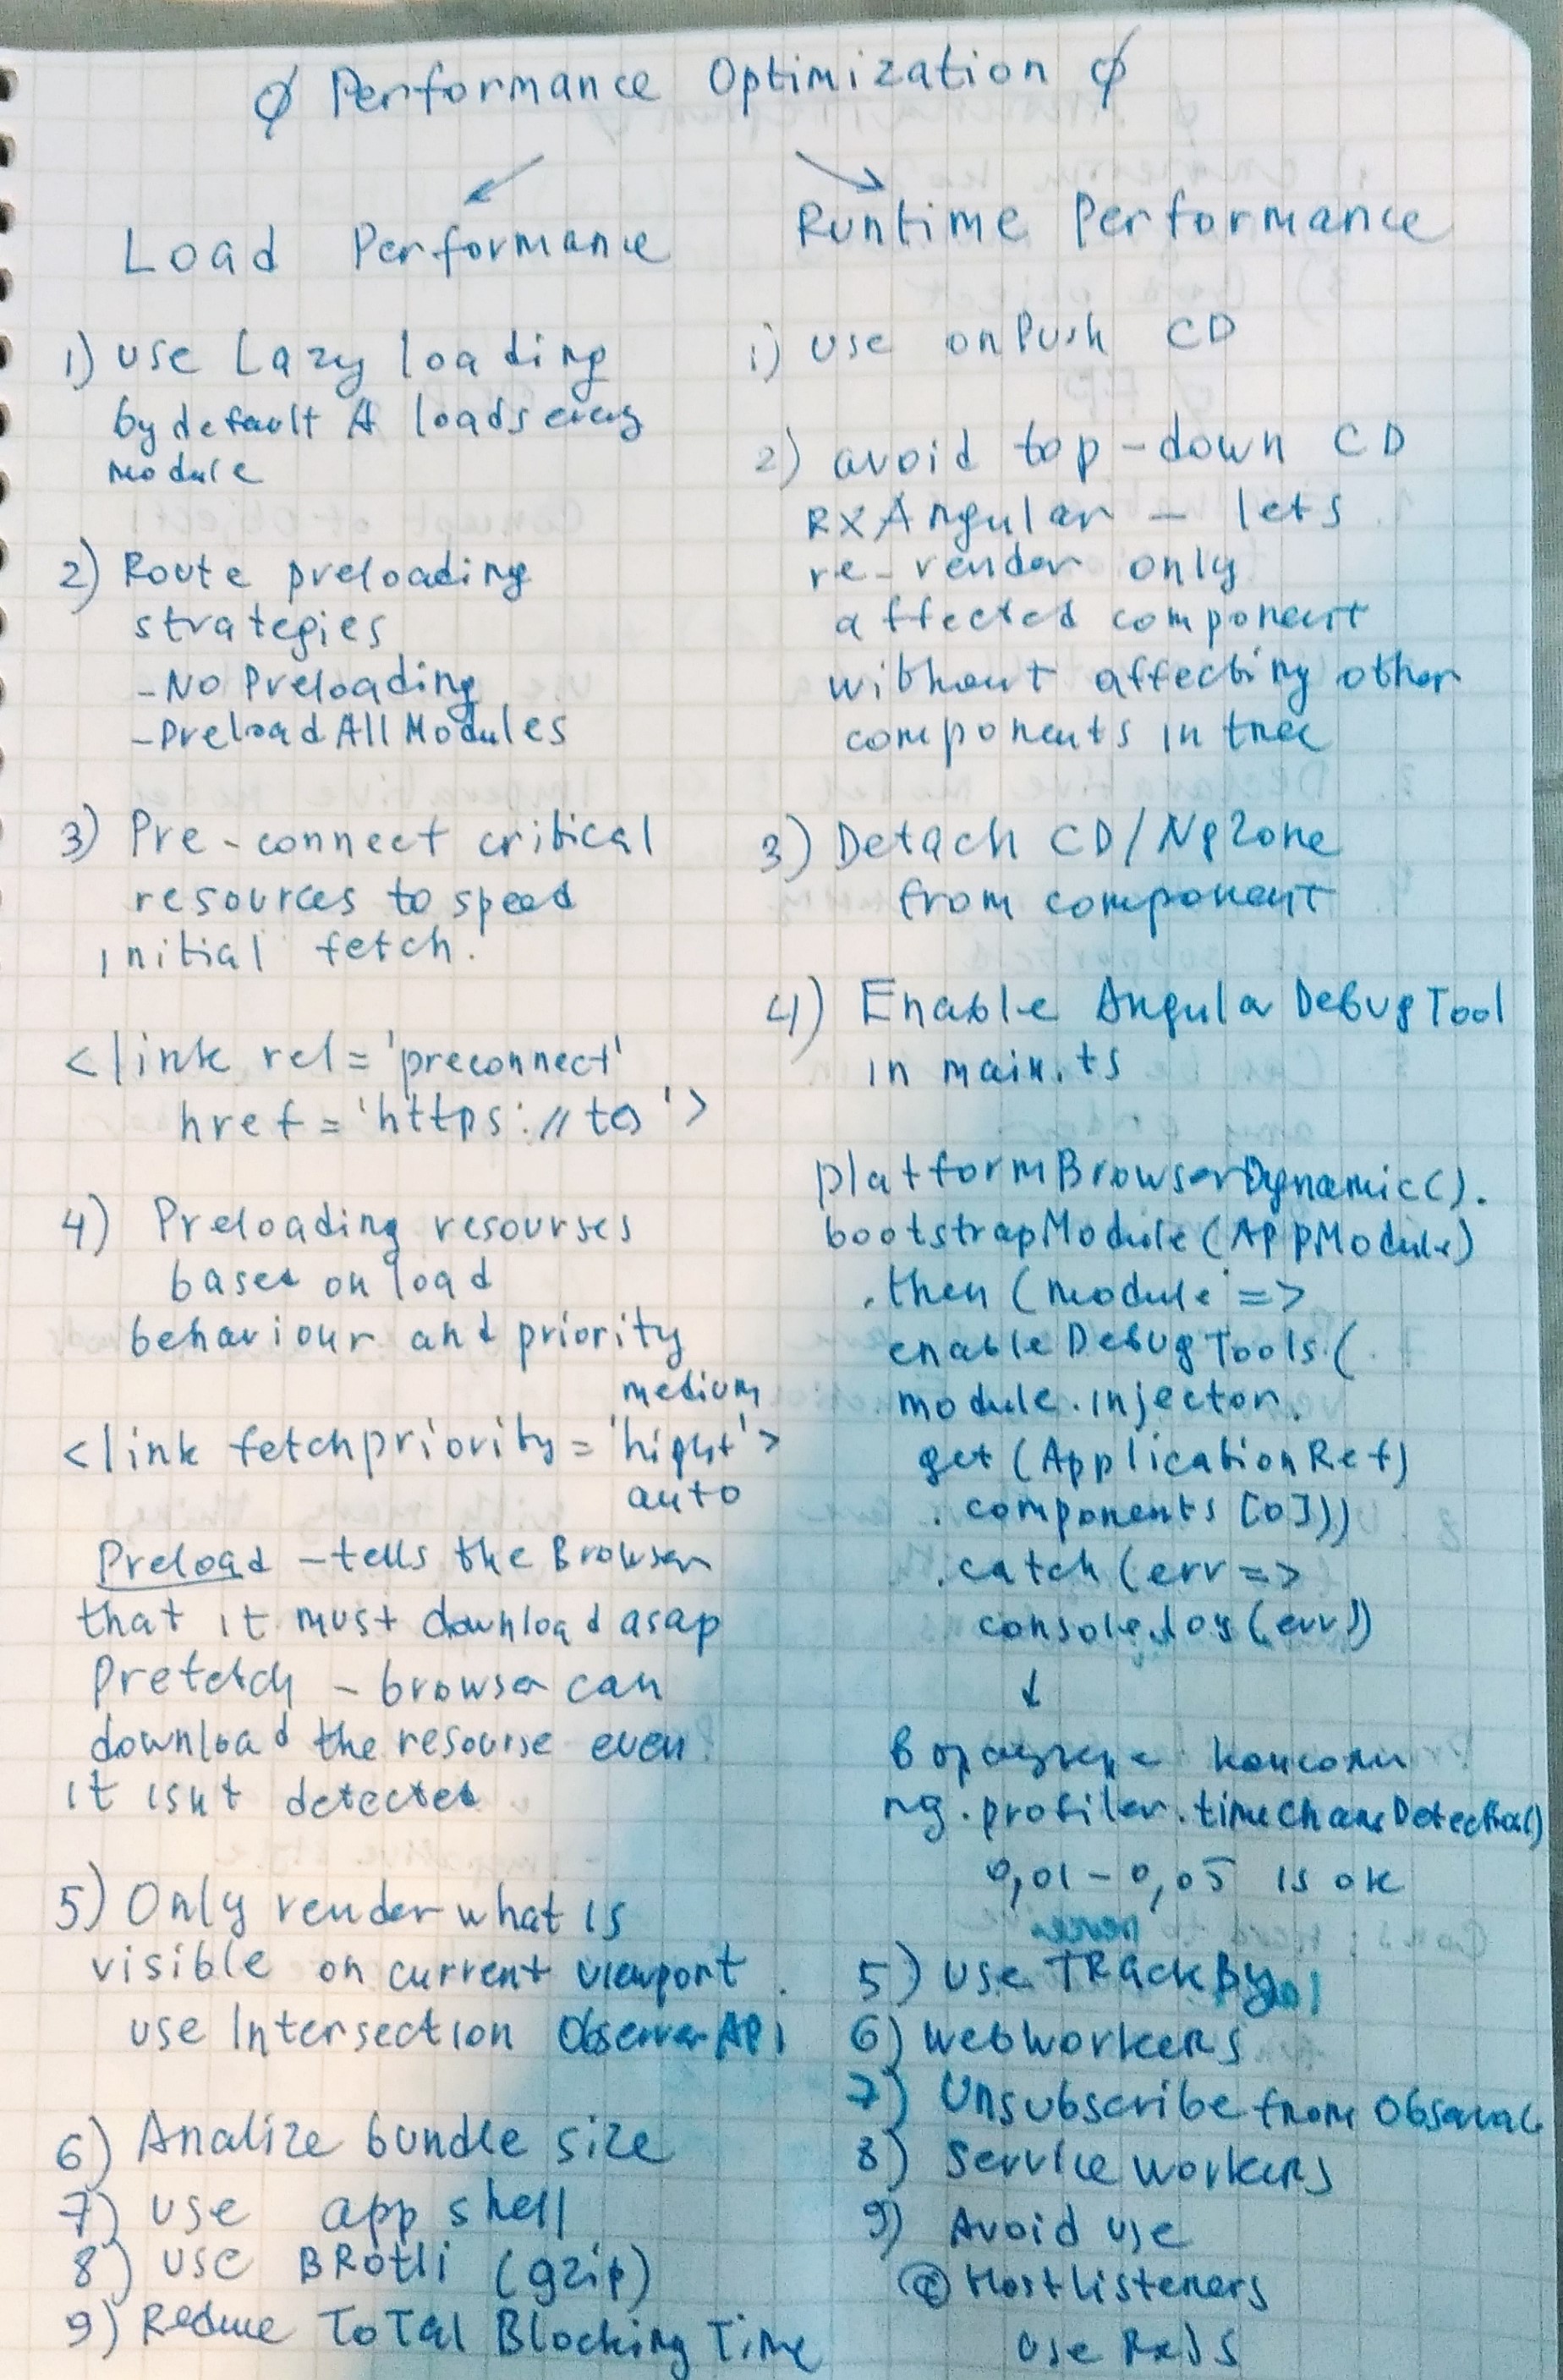 ∅ Performance Optimization ∅
Load Performance
1) use Lazy loading
by default A loads every
module
2) Route preloading
strategies
- No Preloading
- Preload All Modules
3) Pre-connect critical
resources to speed
initial fetch.
<link rel = 'preconnect'
href = 'https://to'>
4) Preloading resourses
based on load
behaviour and priority
medium
<link fetchpriority = 'hight'>
auto
Preload - tells the Browser
that it must download asap
Prefetch - browser can
download the resourse even
it isnt detected
5) Only render what is
visible on current viewport
use Intersection Observer API
6) Analize bundle size
7) use app shell
8) use BRotli (gzip)
9) Reduce ToTal Blocking Time
Runtime Performance
1) use onPush CD
2) avoid top-down CD
RxAngular - lets
re-render only
affected component
without affecting other
components in tree
3) Detach CD/NgZone
from component
4) Enable Angular DebugTool
in main.ts
platformBrowserDynamic().
bootstrapModule(AppModule)
.then (module =>
enableDebugTools(
module.injector.
get (ApplicationRef)
.components [0]))
.catch (err =>
console.log (err))
↓
в браузере консоли
ng.profiler.timeChangDetection()
0,01 - 0,05 is ok
5) Use TRackBy
6) webworkers
7) Unsubscribe from
8) Service workers
9) Avoid use
@Hostlisteners
use RxJS